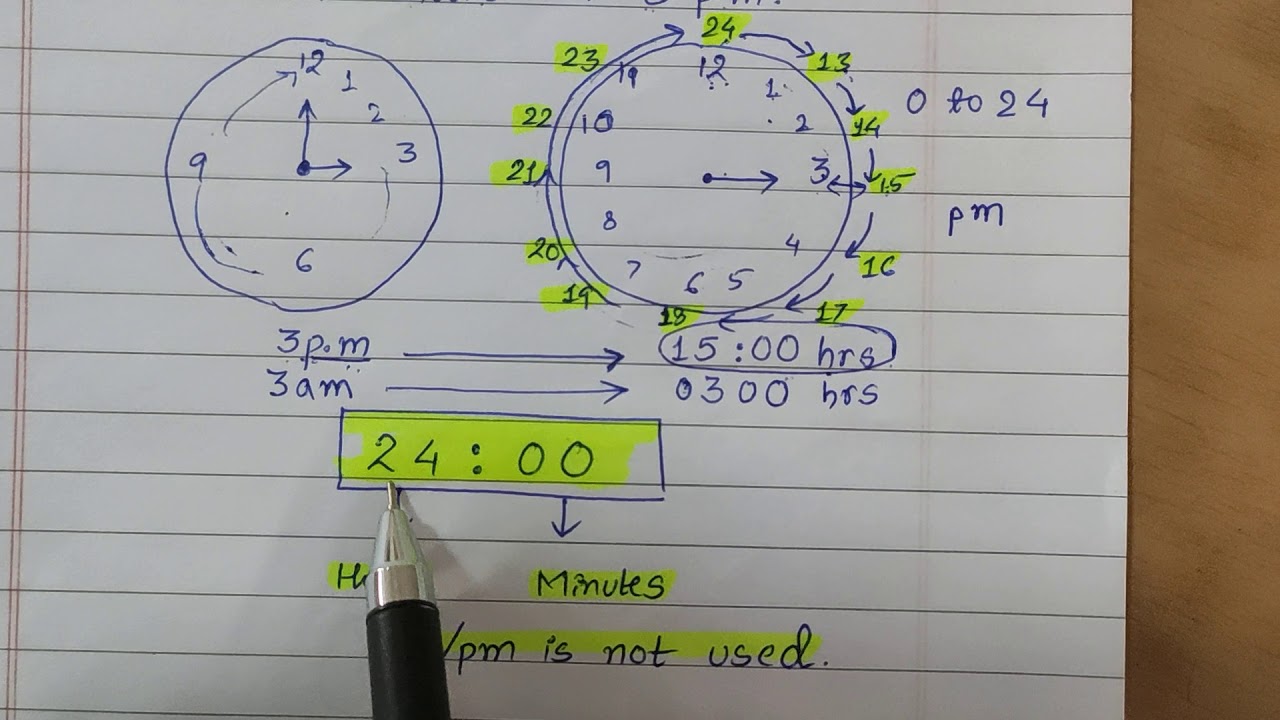 pm.
12
1
2
3
6
9
24
23
13
19
12
1
22
10
2
14
0 to 24
21
9
3
15
pm
8
20
4
16
7
6
5
19
18
17
3p.m
15:00 hrs
3am
0300 hrs
24:00
Minutes
/pm is not used.